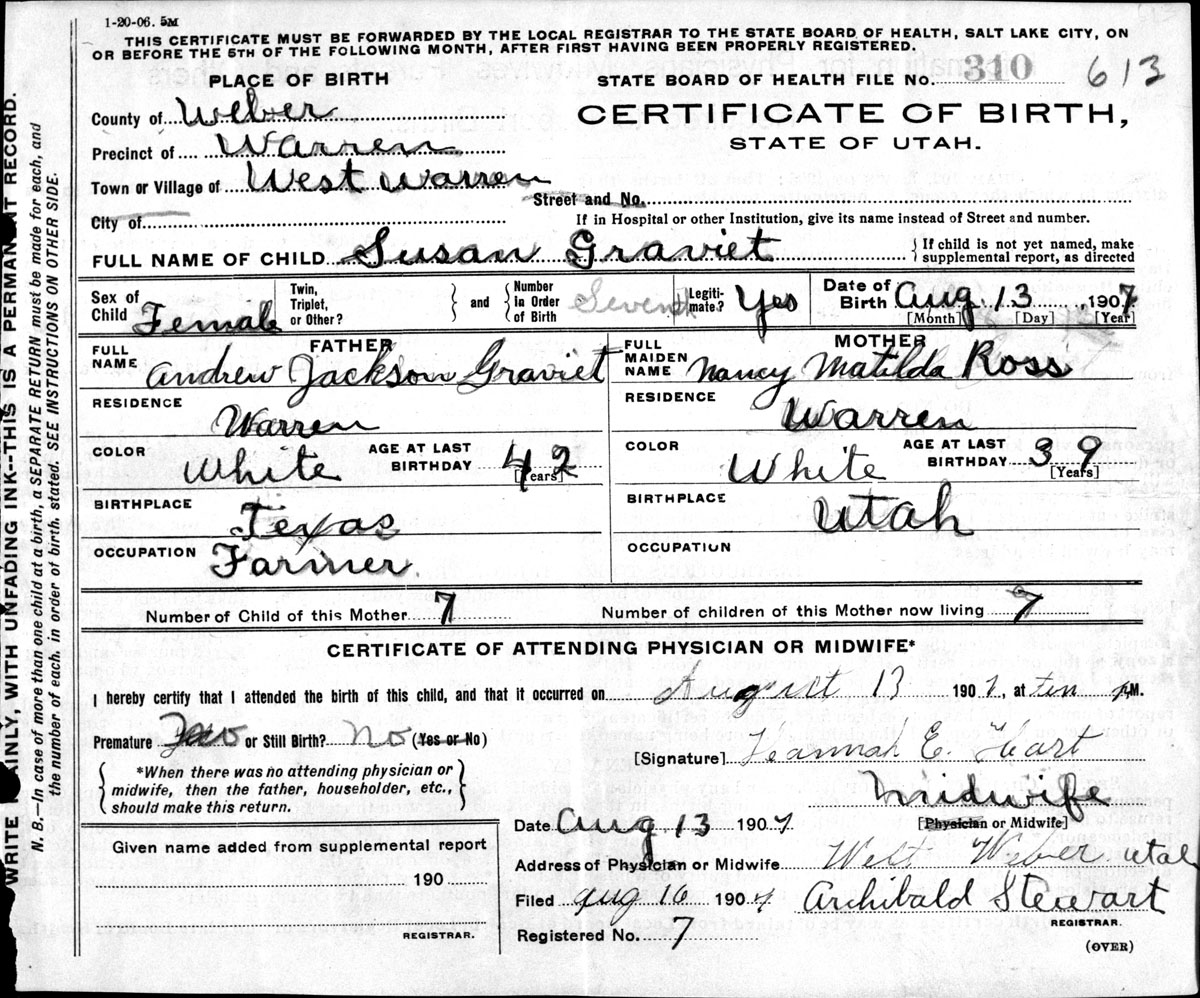 1-20-06. 5M
THIS CERTIFICATE MUST BE FORWARDED BY THE LOCAL REGISTRAR TO THE STATE BOARD OF HEALTH, SALT LAKE CITY, ON
OR BEFORE THE 5TH OF THE FOLLOWING MONTH, AFTER FIRST HAVING BEEN PROPERLY REGISTERED.
PLACE OF BIRTH
STATE BOARD OF HEALTH FILE NO. 310 613
County of Weber
CERTIFICATE OF BIRTH,
Precinct of Warren
STATE OF UTAH.
Town or Village of West Warren
Street and No.
City of
If in Hospital or other Institution, give its name instead of Street and number.
FULL NAME OF CHILD Susan Graviet
If child is not yet named, make
supplemental report, as directed
Sex of Child Female
Twin, Triplet, or Other?
and
Number in Order of Birth Seventh
Legitimate? Yes
Date of Birth Aug. 13 1907
[Month] [Day] [Year]
FATHER
FULL NAME Andrew Jackson Graviet
MOTHER
FULL MAIDEN NAME Nancy Matilda Ross
RESIDENCE Warren
RESIDENCE Warren
COLOR White AGE AT LAST BIRTHDAY 42 [Years]
COLOR White AGE AT LAST BIRTHDAY 39 [Years]
BIRTHPLACE Texas
BIRTHPLACE Utah
OCCUPATION Farmer.
OCCUPATION
Number of Child of this Mother 7 Number of children of this Mother now living 7
CERTIFICATE OF ATTENDING PHYSICIAN OR MIDWIFE*
I hereby certify that I attended the birth of this child, and that it occurred on August 13 1907, at ten P.M.
Premature No or Still Birth? No (Yes or No)
[Signature] Hannah E. Hart
*When there was no attending physician or
midwife, then the father, householder, etc.,
should make this return.
Midwife
[Physician or Midwife]
Date Aug 13 1907
Address of Physician or Midwife West Weber Utah
Filed Aug 16 1907 Archibald Stewart
REGISTRAR.
Registered No. 7
(OVER)
Given name added from supplemental report
190
REGISTRAR.
WRITE PLAINLY, WITH UNFADING INK--THIS IS A PERMANENT RECORD.
N. B.—In case of more than one child at a birth, a SEPARATE RETURN must be made for each, and
the number of each, in order of birth, stated. SEE INSTRUCTIONS ON OTHER SIDE.